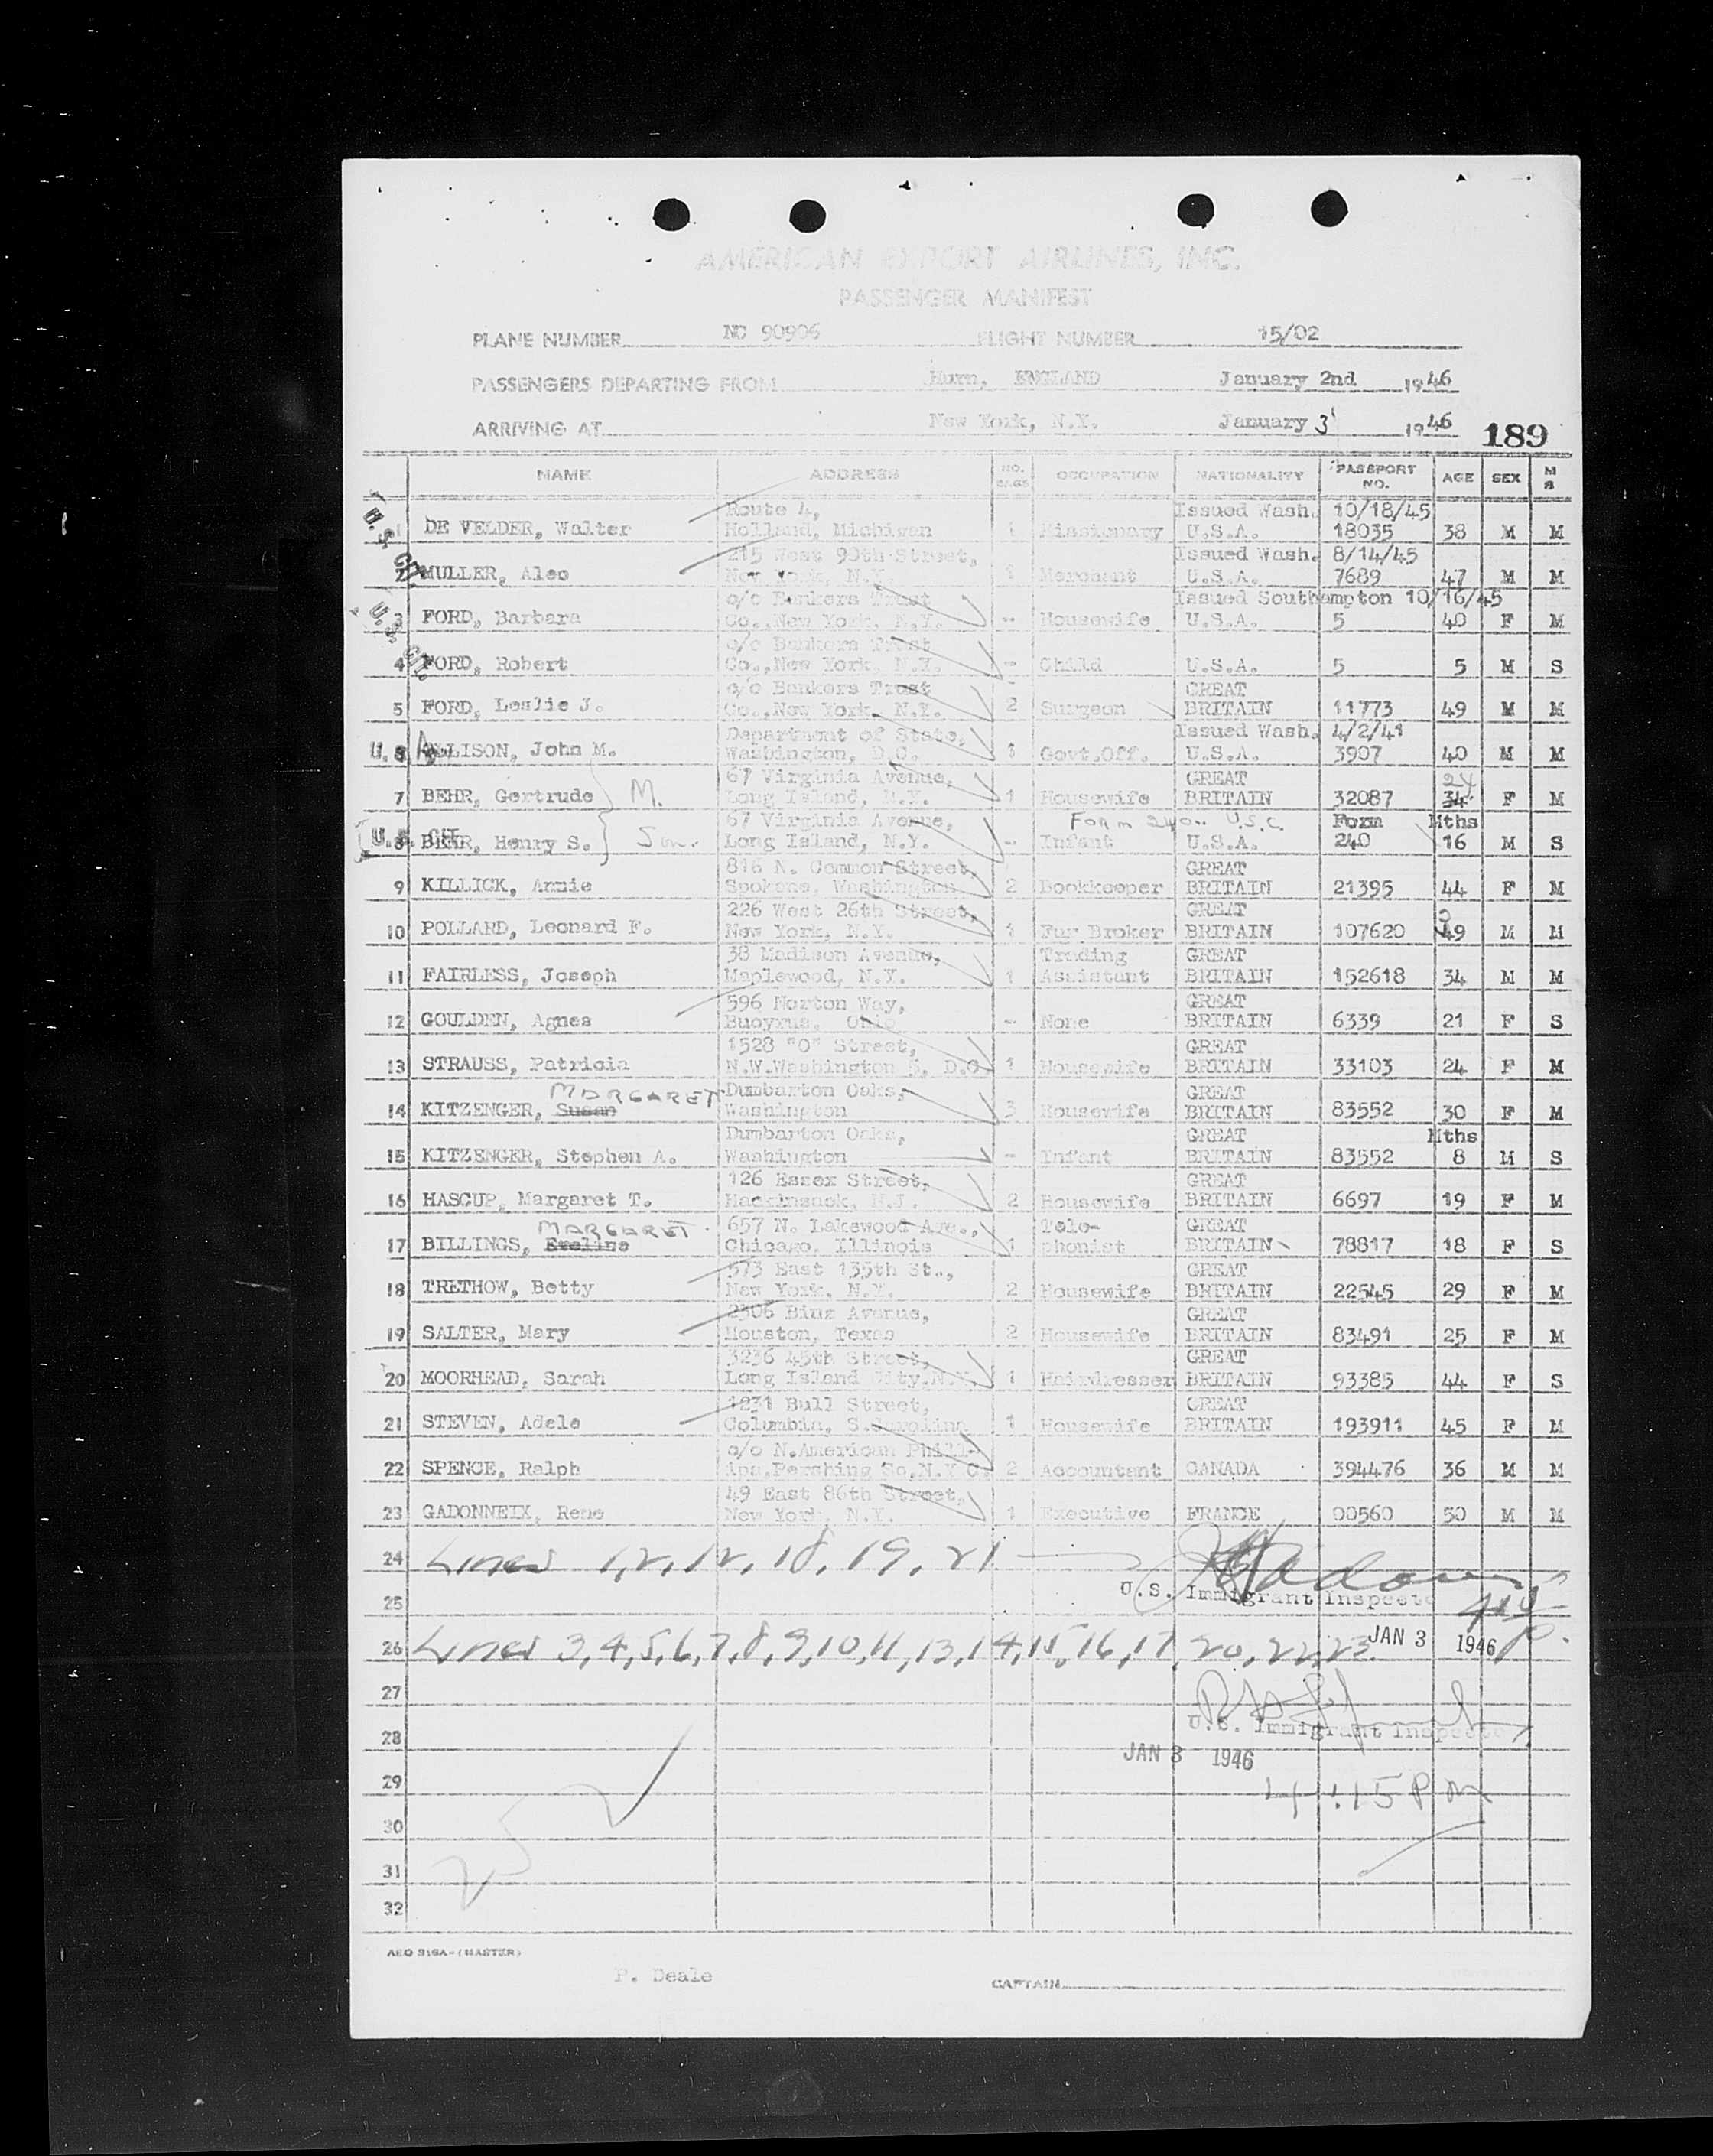 AMERICAN EXPORT AIRLINES, INC.
PASSENGER MANIFEST
PLANE NUMBER NC 90906 FLIGHT NUMBER 15/02
PASSENGERS DEPARTING FROM Hurn, ENGLAND January 2nd 1946
ARRIVING AT New York, N.Y. January 3 1946 189
NAME ADDRESS NO. OCCUPATION NATIONALITY PASSPORT NO. AGE SEX M S
Route 4, Issued Wash. 10/18/45
1 DE VELDER, Walter Holland, Michigan 1 Missionary U.S.A. 18035 38 M M
215 West 90th Street, Issued Wash. 8/14/45
2 MULLER, Alec New York, N.Y. 1 Merchant U.S.A. 7689 47 M M
c/o Bankers Trust Issued Southampton 10/16/45
3 FORD, Barbara Co., New York, N.Y. - Housewife U.S.A. 5 40 F M
c/o Bankers Trust
4 FORD, Robert Co., New York, N.Y. - Child U.S.A. 5 5 M S
c/o Bankers Trust GREAT
5 FORD, Leslie J. Co., New York, N.Y. 2 Surgeon BRITAIN 11773 49 M M
Department of State, Issued Wash. 4/2/41
ALLISON, John M. Washington, D.C. 1 Govt.Off. U.S.A. 3907 40 M M
67 Virginia Avenue, GREAT 24
7 BEHR, Gertrude M. Long Island, N.Y. 1 Housewife BRITAIN 32087 34 F M
67 Virginia Avenue, Form 240 U.S.C. Form Mths
U.S. Cit. 8 BEHR, Henry S. Son. Long Island, N.Y. - Infant U.S.A. 240 16 M S
816 N. Common Street, GREAT
9 KILLICK, Annie Spokane, Washington 2 Bookkeeper BRITAIN 21395 44 F M
226 West 26th Street, GREAT
10 POLLARD, Leonard F. New York, N.Y. 1 Fur Broker BRITAIN 107620 49 M M
38 Madison Avenue, Trading GREAT
11 FAIRLESS, Joseph Maplewood, N.Y. 1 Assistant BRITAIN 152618 34 M M
596 Norton Way, GREAT
12 GOULDEN, Agnes Bucyrus, Ohio - None BRITAIN 6339 21 F S
1528 "O" Street, GREAT
13 STRAUSS, Patricia N.W.Washington 5, D.C 1 Housewife BRITAIN 33103 24 F M
MARGARET Dumbarton Oaks, GREAT
14 KITZENGER, Susan Washington 3 Housewife BRITAIN 83552 30 F M
Dumbarton Oaks, GREAT Mths
15 KITZENGER, Stephen A. Washington - Infant BRITAIN 83552 8 M S
126 Essex Street, GREAT
16 HASCUP, Margaret T. Hackinsack, N.J. 2 Housewife BRITAIN 6697 19 F M
MARGARET 657 N. Lakewood Ave., Tele- GREAT
17 BILLINGS, Eveline Chicago, Illinois 1 phonist BRITAIN 78817 18 F S
573 East 135th St., GREAT
18 TRETHOW, Betty New York, N.Y. 2 Housewife BRITAIN 22545 29 F M
2306 Binz Avenue, GREAT
19 SALTER, Mary Houston, Texas 2 Housewife BRITAIN 83491 25 F M
3236 45th Street, GREAT
20 MOORHEAD, Sarah Long Island City, N.Y. 1 Hairdresser BRITAIN 93385 44 F S
1231 Bull Street, GREAT
21 STEVEN, Adele Columbia, S.Carolina 1 Housewife BRITAIN 193911 45 F M
c/o N.American Phill-
22 SPENCE, Ralph ips, Pershing Sq,N.Y C. 2 Accountant CANADA 394476 36 M M
49 East 86th Street,
23 GADONNEIX, Rene New York, N.Y. 1 Executive FRANCE 00560 50 M M
24 Lines 1, 2, 12, 18, 19, 21
25 U.S. Immigrant Inspector
26 Lines 3, 4, 5, 6, 7, 8, 9, 10, 11, 13, 14, 15, 16, 17, 20, 22, 23 JAN 3 1946
27
28 U.S. Immigrant Inspector
JAN 3 1946
29 4:15 PM
30
31 25
32
AEO 318A-(MASTER)
P. Deale CAPTAIN